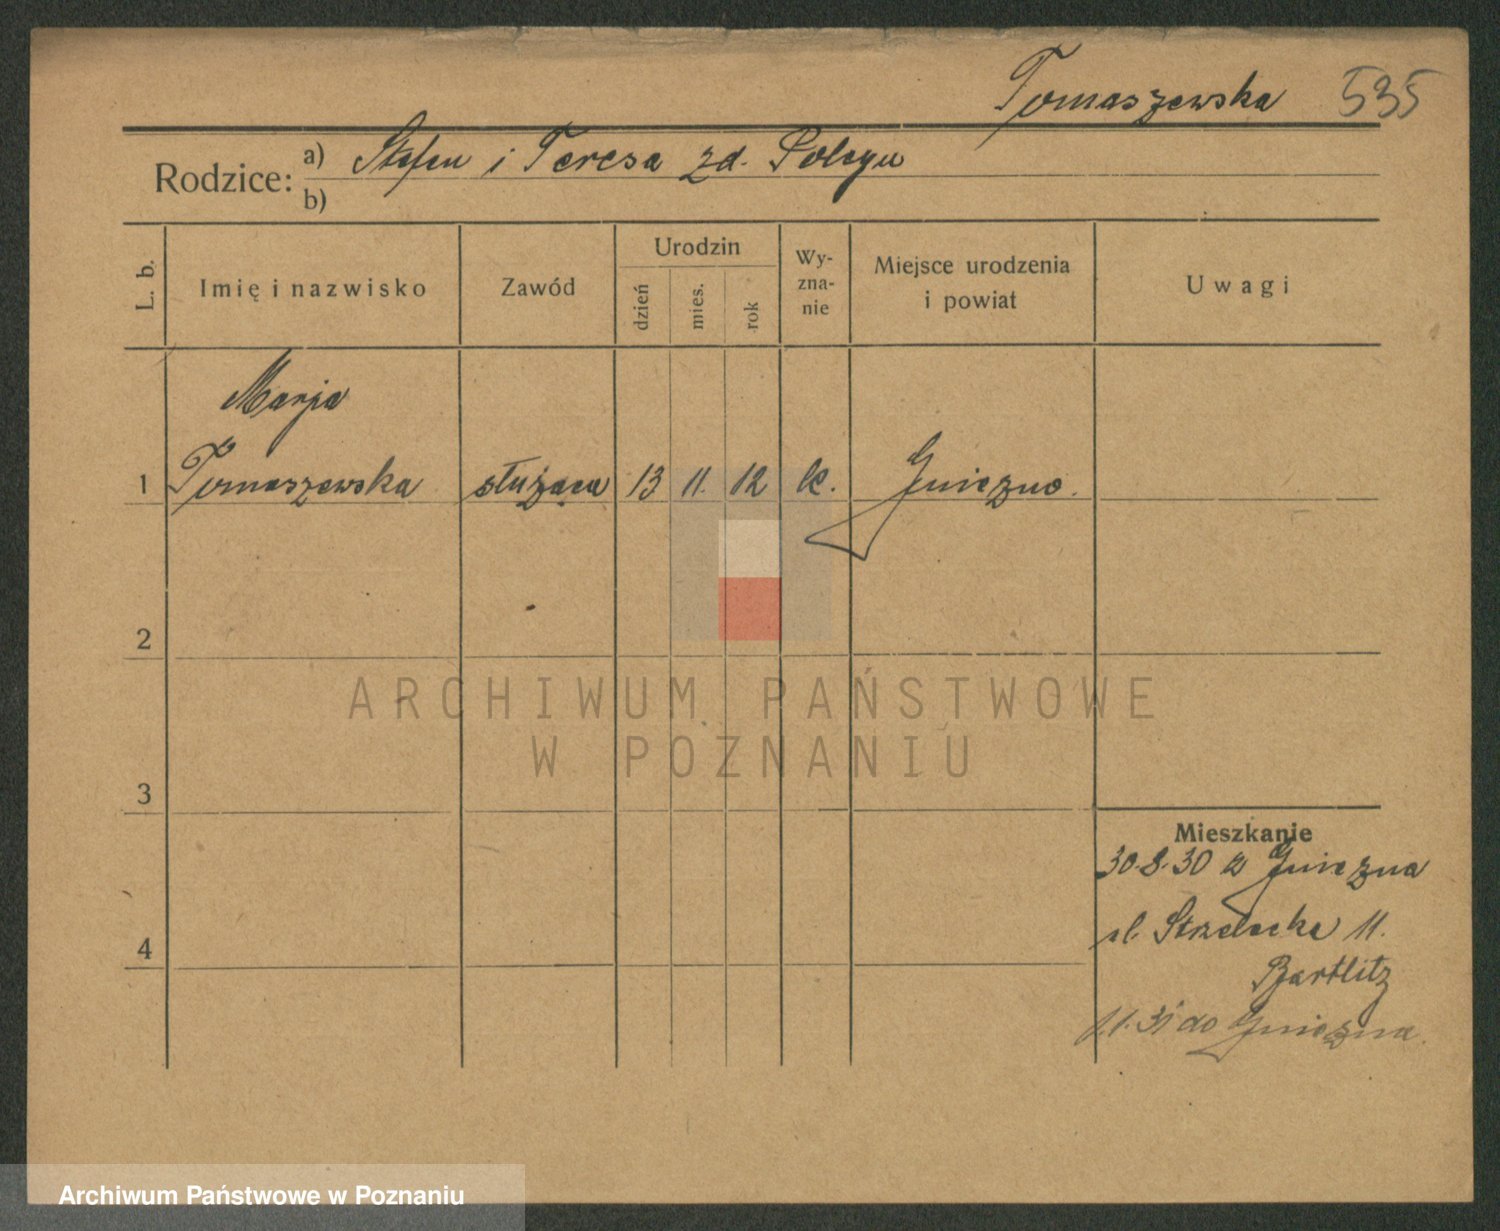 Tomaszewska 535
Rodzice: a) Stefan i Teresa zd.
b)
L. b.
Imię i nazwisko
Zawód
Urodzin
dzień
mies.
rok
Wy-
zna-
nie
Miejsce urodzenia
i powiat
Uwagi
Marja
1 Tomaszewska służąca 13 11. 12 k. Gniezno.
2
3
4
Mieszkanie
30.8.30 z Gniezna
ul. Strzelecka 11.
Bartlitz
31 do Gniezna.
ARCHIWUM PAŃSTWOWE
W POZNANIU
Archiwum Państwowe w Poznaniu